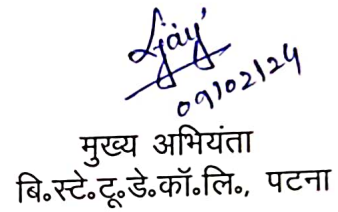 09/02/24
मुख्य अभियंता
बि॰स्टे॰टू॰डे॰कॉ॰लि॰, पटना